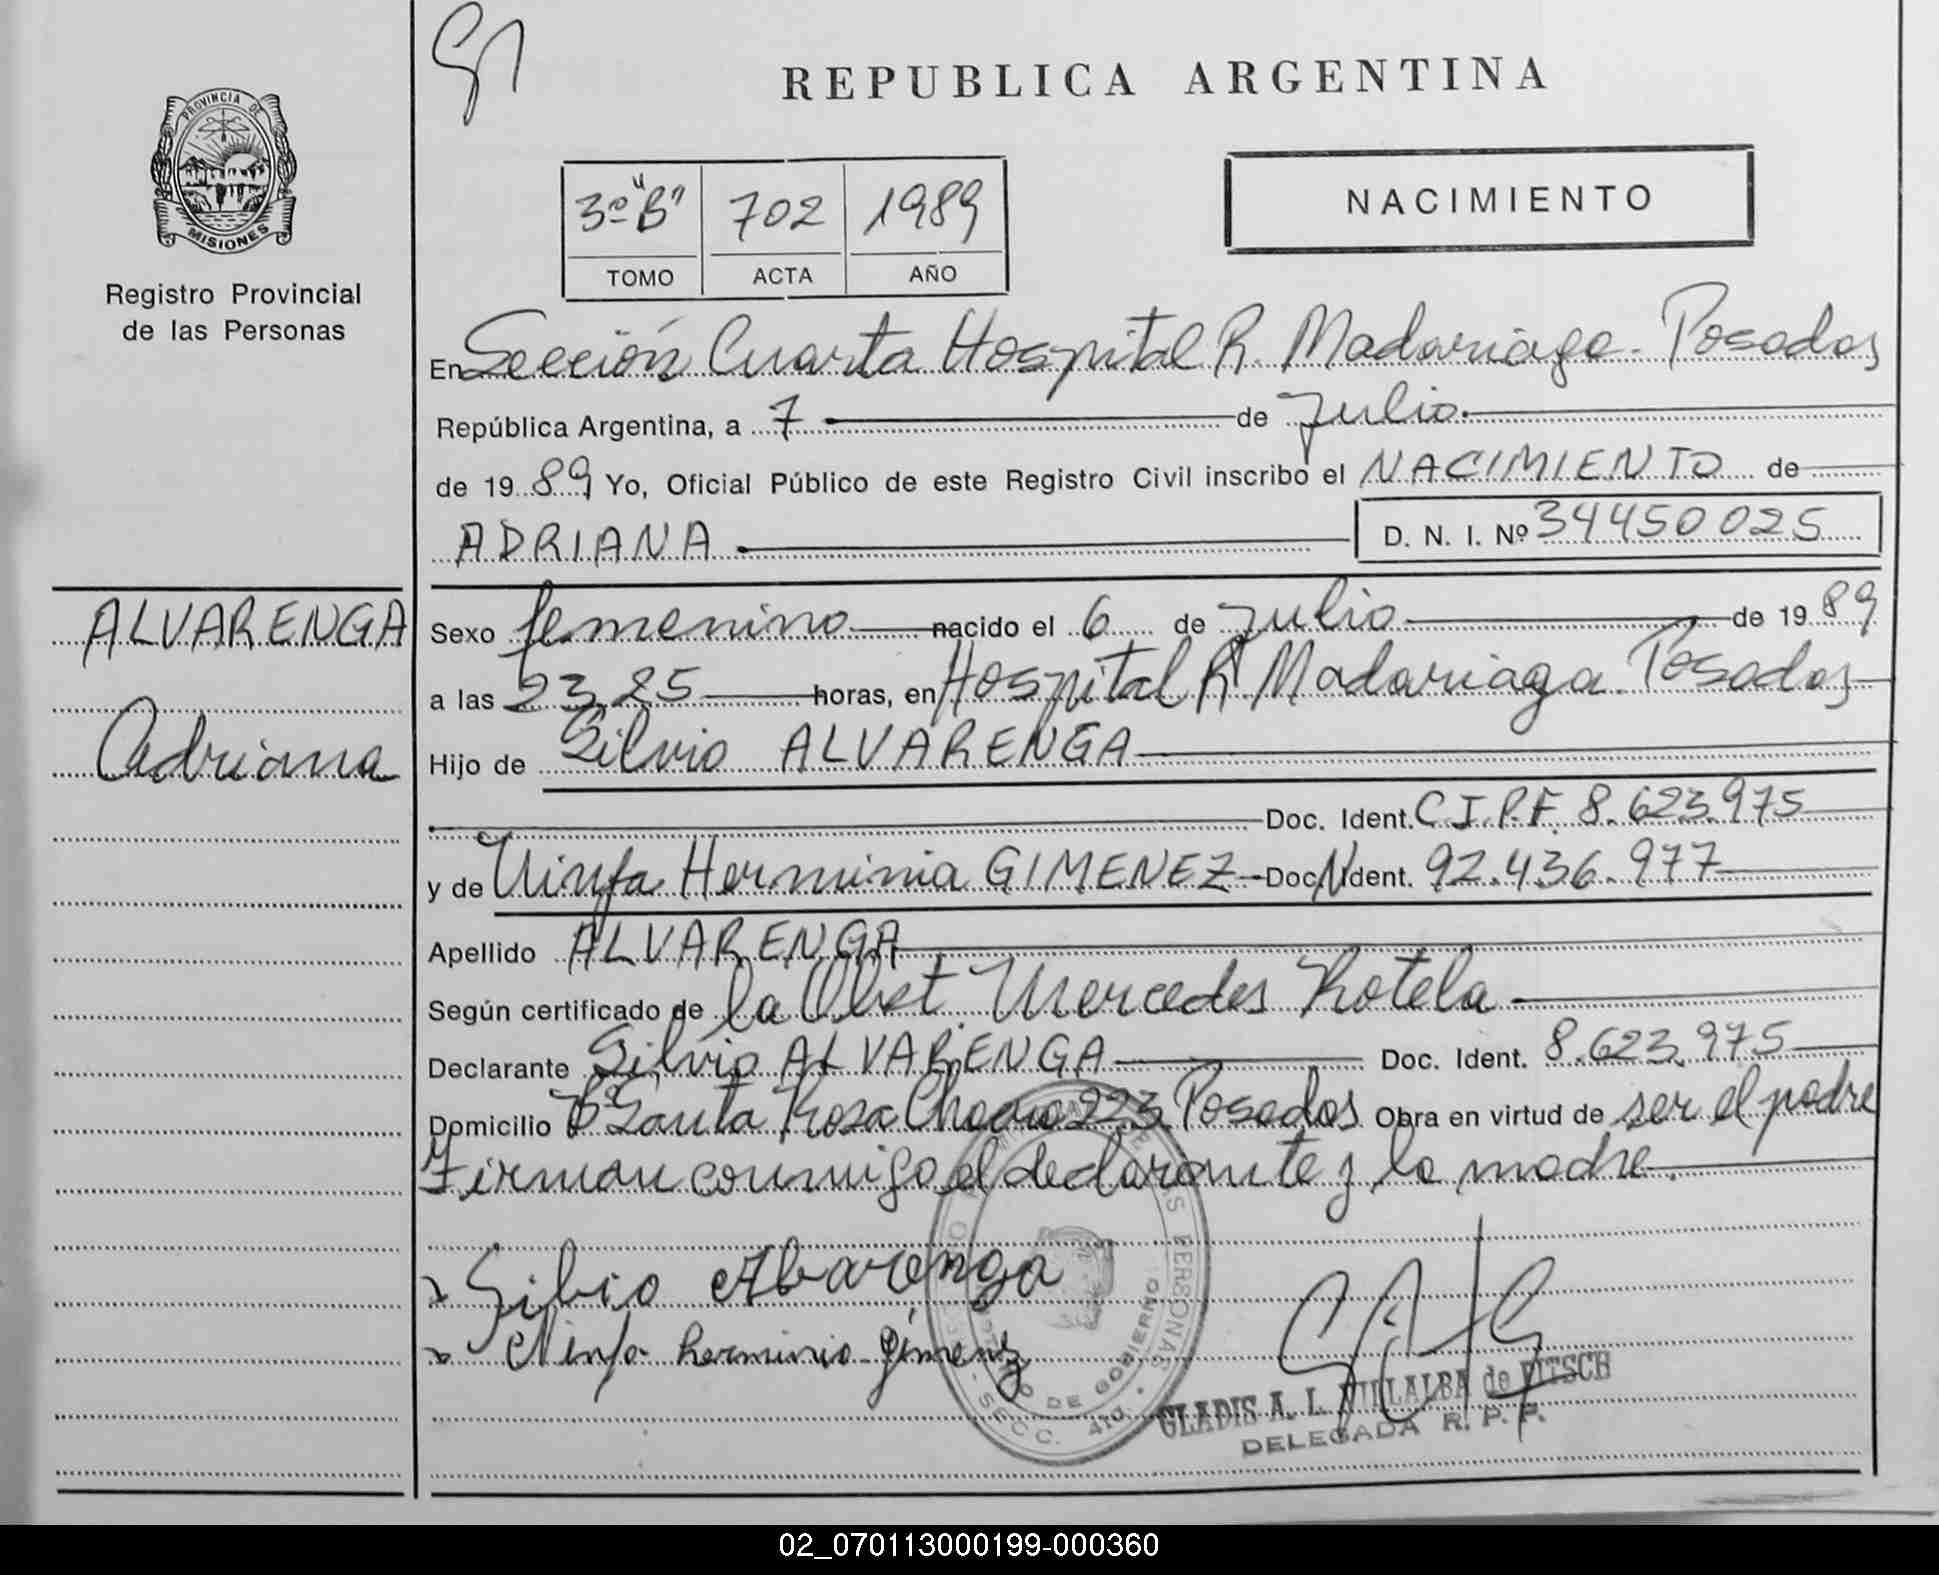 REPUBLICA ARGENTINA
PROVINCIA DE
MISIONES
Registro Provincial
de las Personas
3º "B" 702 1989
TOMO ACTA AÑO
NACIMIENTO
En Sección Cuarta Hospital R. Madariaga. Posadas
República Argentina, a 7 de Julio
de 1989 Yo, Oficial Público de este Registro Civil inscribo el NACIMIENTO de
ADRIANA D. N. I. Nº 34450025
ALVARENGA
Adriana
Sexo femenino nacido el 6 de Julio de 1989
a las 23,25 horas, en Hospital R. Madariaga. Posadas
Hijo de Silvio ALVARENGA
Doc. Ident. C.I.P.F. 8.623.975
y de Ninfa Herminia GIMENEZ Doc. Ident. 92.436.977
Apellido ALVARENGA
Según certificado de la Obst. Mercedes Rotela
Declarante Silvio ALVARENGA Doc. Ident. 8.623.975
Domicilio Bº Santa Rosa 223 Posadas Obra en virtud de ser el padre
Firman conmigo el declarante y la madre.
Silbio Abarenga
Ninfa herminia Gimenez
DE GOBIERNO
SECC. 4ta.
GLADIS A. L. VILLALBA de FITSCH
DELEGADA R. P. P.
02_070113000199-000360